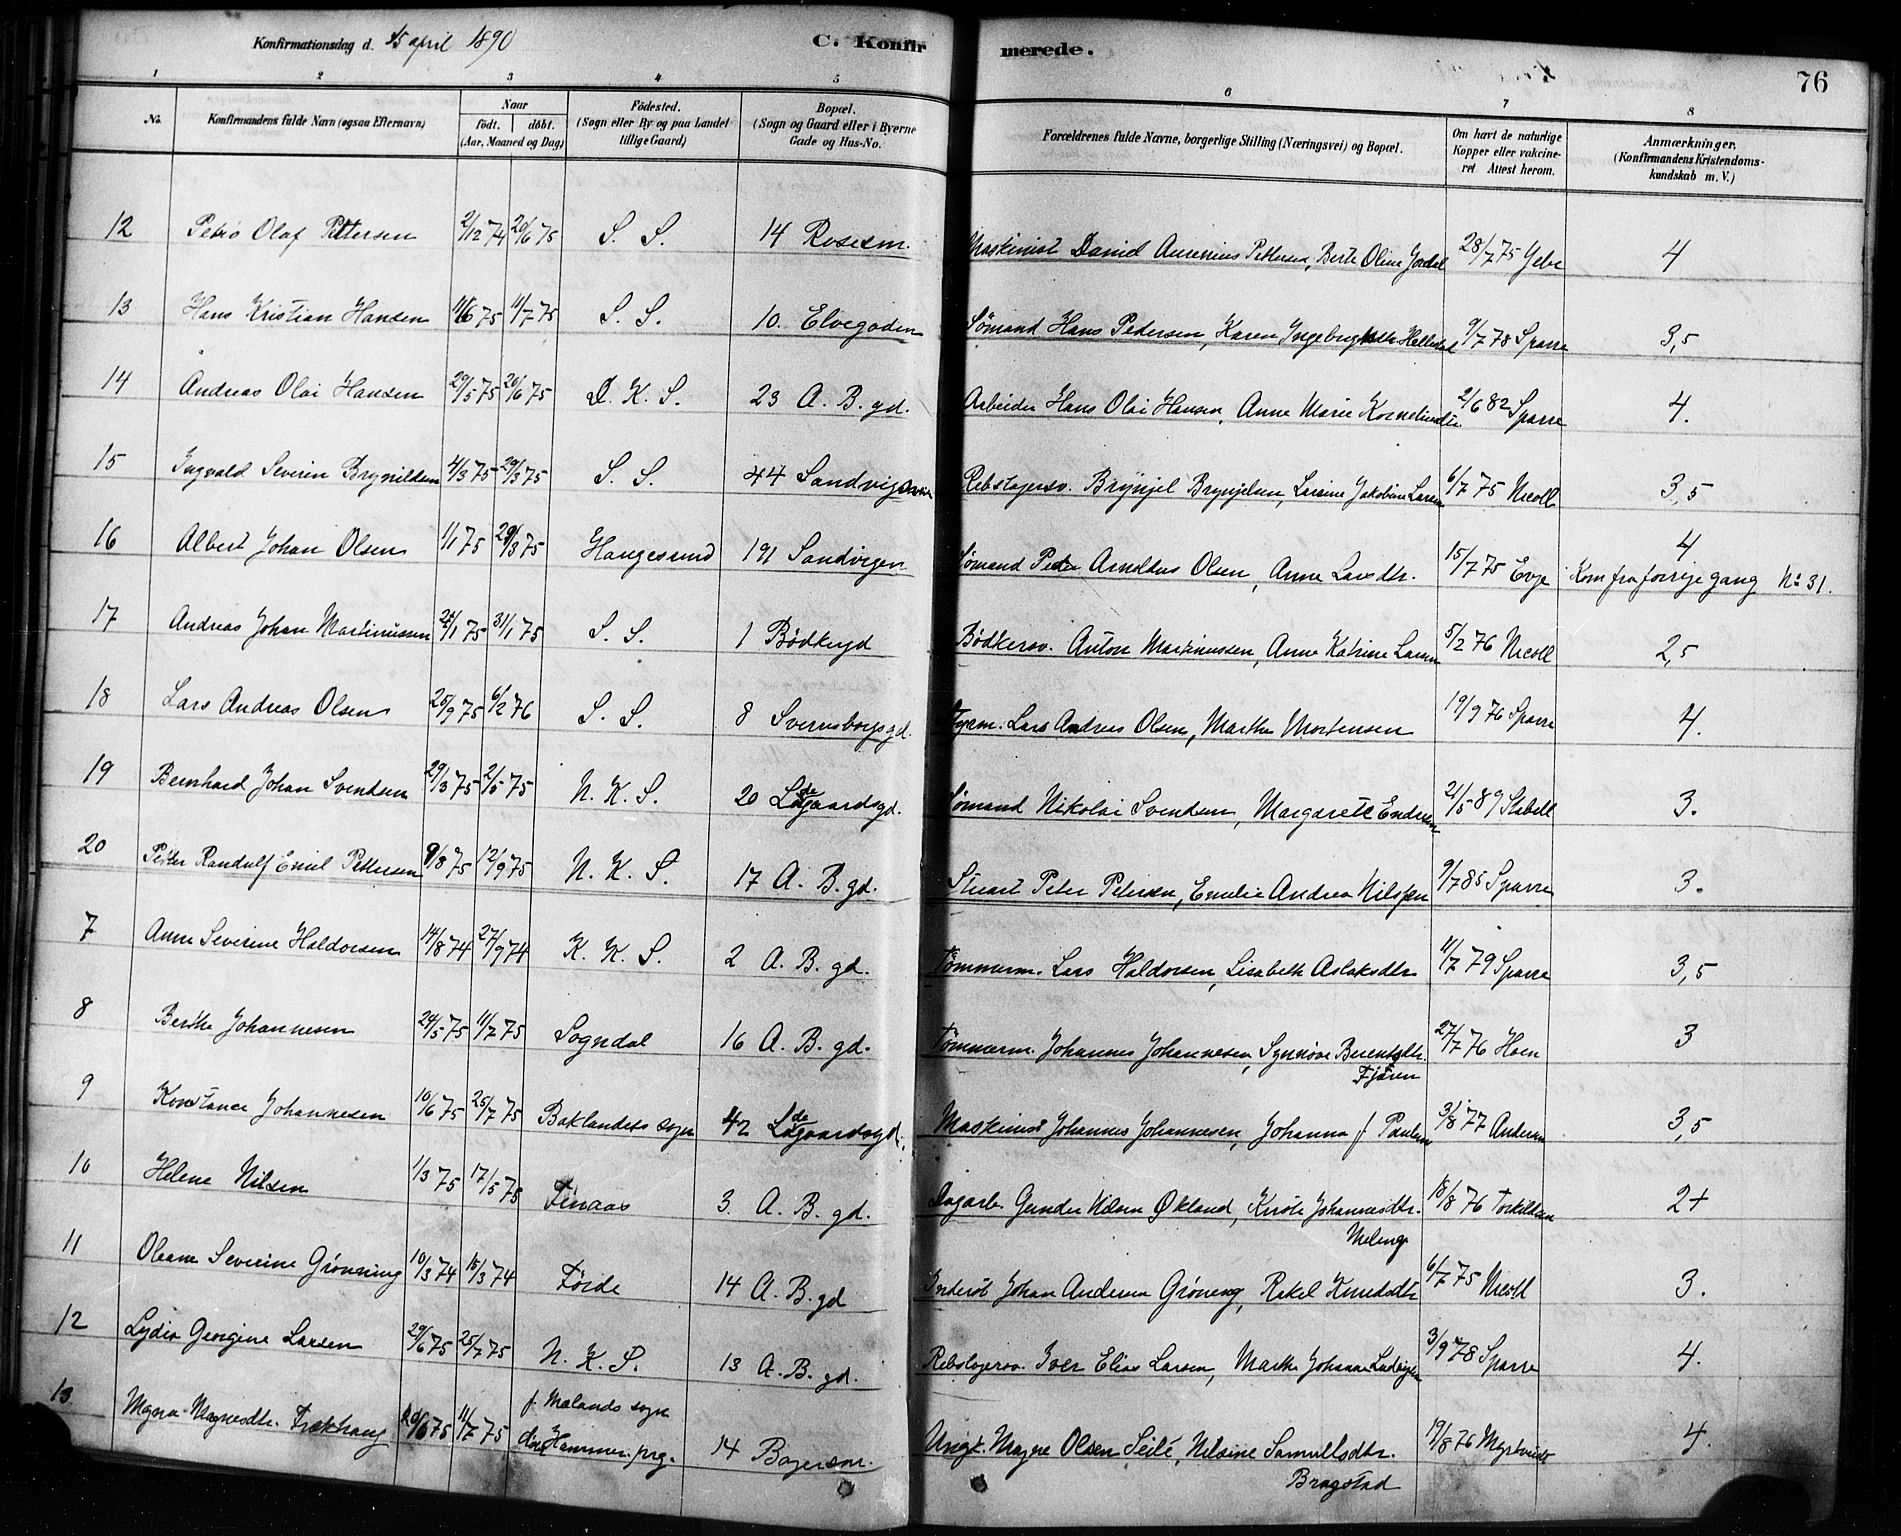 Konfirmationsdag d. 15 april 1890
C. Konfirmerede.
76
1 2 3 4 5 6 7 8
No.
Konfirmandens fulde Navn (ogsaa Efternavn)
Naar
födt. döbt.
(Aar, Maaned og Dag)
Födested.
(Sogn eller By og paa Landet tillige Gaard)
Bopæl.
(Sogn og Gaard eller i Byerne Gade og Hus-No.
Forældrenes fulde Navne, borgerlige Stilling (Næringsvei) og Bopæl.
Om havt de naturlige Kopper eller vakcineret Attest herom.
Anmærkninger.
(Konfirmandens Kristendomskundskab m. V.)
12 Petro Olaf Pettersen 2/12 74 20/6 75 S. S. 14 Rosesm. Maskinist Daniel Aurenius Pettersen, Berte Oline Jordal 28/7 75 Gebe 4
13 Hans Kristian Hansen 11/6 75 11/7 75 S. S. 10. Elvegaden Sømand Hans Pedersen, Karen Hellestad 9/7 78 Sparre 3,5
14 Andreas Olai Hansen 29/5 75 20/6 75 D. K. S. 23 A. B. gd. Arbeider Hans Olai Hansen, Anne Marie Korneliusdtr. 2/6 82 Sparre 4.
15 Ingvald Severin Brynildsen 4/3 75 29/3 75 S. S. 44 Sandvigsveien Rebslagersv. Brynjel Brynjelsen, Lavine Jakobine Larsen 6/7 75 Nicoll 3,5
16 Albert Johan Olsen 1/1 75 29/3 75 Haugesund 191 Sandvigen Sømand Peder Arnoldus Olsen, Anne Larsdtr. 15/7 75 Evje 4
Kom fra forrige gang No 31.
17 Andreas Johan Martinussen 22/1 75 31/1 75 S. S. 1 Bødkergd Bødkersv. Anton Martinussen, Anne Katrine Larsen 5/2 76 Nicoll 2,5
18 Lars Andreas Olsen 25/9 75 6/2 76 S. S. 8 Sverresborgsgd. Styrm. Lars Andreas Olsen, Marthe Mortensen 19/9 76 Sparre 4.
19 Bernhard Johan Svendsen 29/3 75 2/5 75 N. K. S. 20 Ladegaardsgd. Sømand Nikolai Svendsen, Margarete Endresen 21/5 89 Stabell 3.
20 Peter Randulf Emil Pettersen 9/8 75 12/9 75 N. K. S. 17 A. B. gd. Stuart Peter Petersen, Emelie Andrea Nilssen 9/7 85 Sparre 3.
7 Anne Severine Haldorsen 14/8 74 27/9 74 K. K. S. 2 A. B. gd. Tømmerm. Lars Haldorsen, Lisabeth Aslaksdtr 11/7 79 Sparre 3,5
8 Berthe Johannesen 24/5 75 11/7 75 Sogndal 16 A. B. gd. Tømmerm. Johannes Johannesen, Synnøve Berentsdtr. 27/7 76 Hoen 3
Fjæren
9 Konstance Johannesen 10/6 75 25/7 75 Baklandets sogn 42 Ladegaardsgd. Maskinist Johannes Johannesen, Johanna f Paulsen 3/8 77 Andersen 3,5
10 Helene Nilsen 1/3 75 17/5 75 Finaas 3. A. B. gd. Dagarb. Gunder Nilsen Økland, Kirste Johannesdtr. 18/8 76 Torkildsen 2+
Meling
11 Oleane Severine Grønning 10/3 74 15/3 74 Førde 14 A. B. gd Inderst Johan Andersen Grøneng, Rakel Knudsdtr 6/7 75 Nicoll 3.
12 Lydia Georgine Larsen 29/6 75 25/7 75 N. K. S. 13 A. B. gd. Rebslagersv. Iver Elias Larsen, Marthe Johanne Ludvigsen 3/9 78 Sparre 4.
13 Magna Magnesdtr. 20/6 75 11/7 75 f. Mælands sogn
døbt Hammer prg. 14 Bagersm. Ungk. Magne Olsen Seile, Nilsine Samuelsdtr. 19/8 76 4.
Bragstad